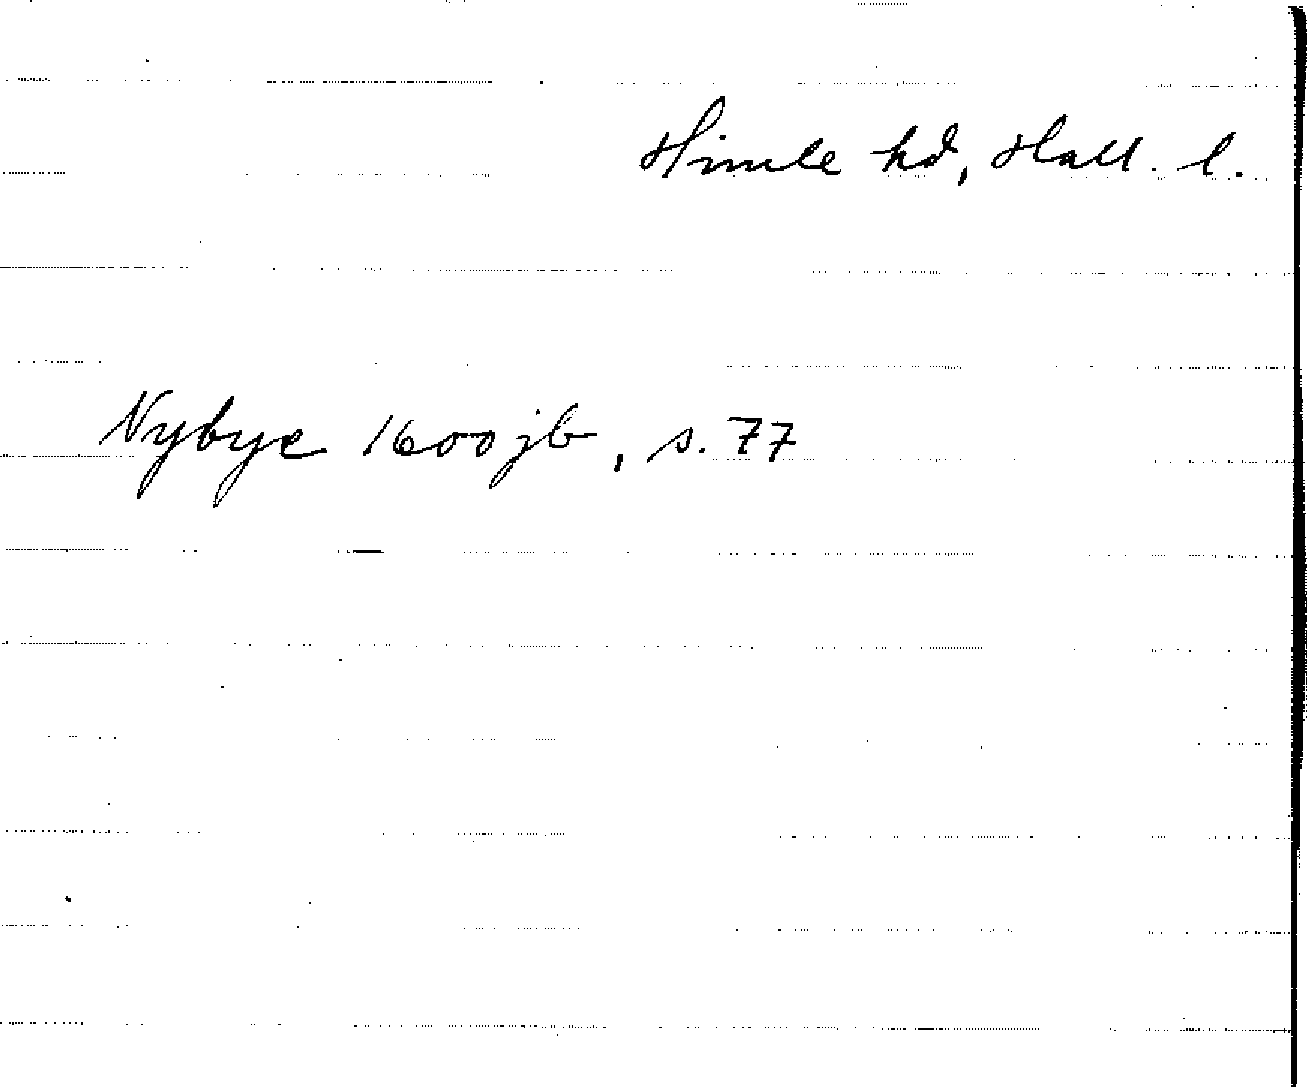 Himle hd, Hall. l.
Nybye 1600 jb, s. 77